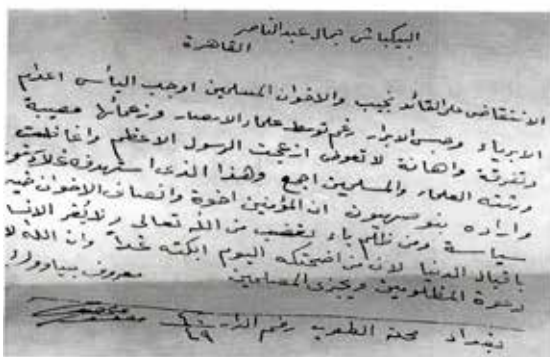 البيكباشي جمال عبد الناصر
القاهرة
الانتقاض على القائد نجيب والاخوان المسلمين اوجب اليأس اعدام
الابرياء وحبس الابرار رغم توسط علماء الامصار وزعمائها مصيبة
وتفرقة واهانة لا تعوض ازعجت الرسول الاعظم واغاظت
ورثته العلماء والمسلمين اجمع وهذا الذي استهدفه
واراده بنو صهيون ان المؤمنين اخوة وانصاف الاخوان خير
سياسة ومن ظلم باء بغضب من الله تعالى ولا يغتر الانسان
باقبال الدنيا لان من اضحكته اليوم ابكته غداً وان الله
لدعوة المظلومين ويجزي المسلمين
معروف
بغداد محلة رقم الدار